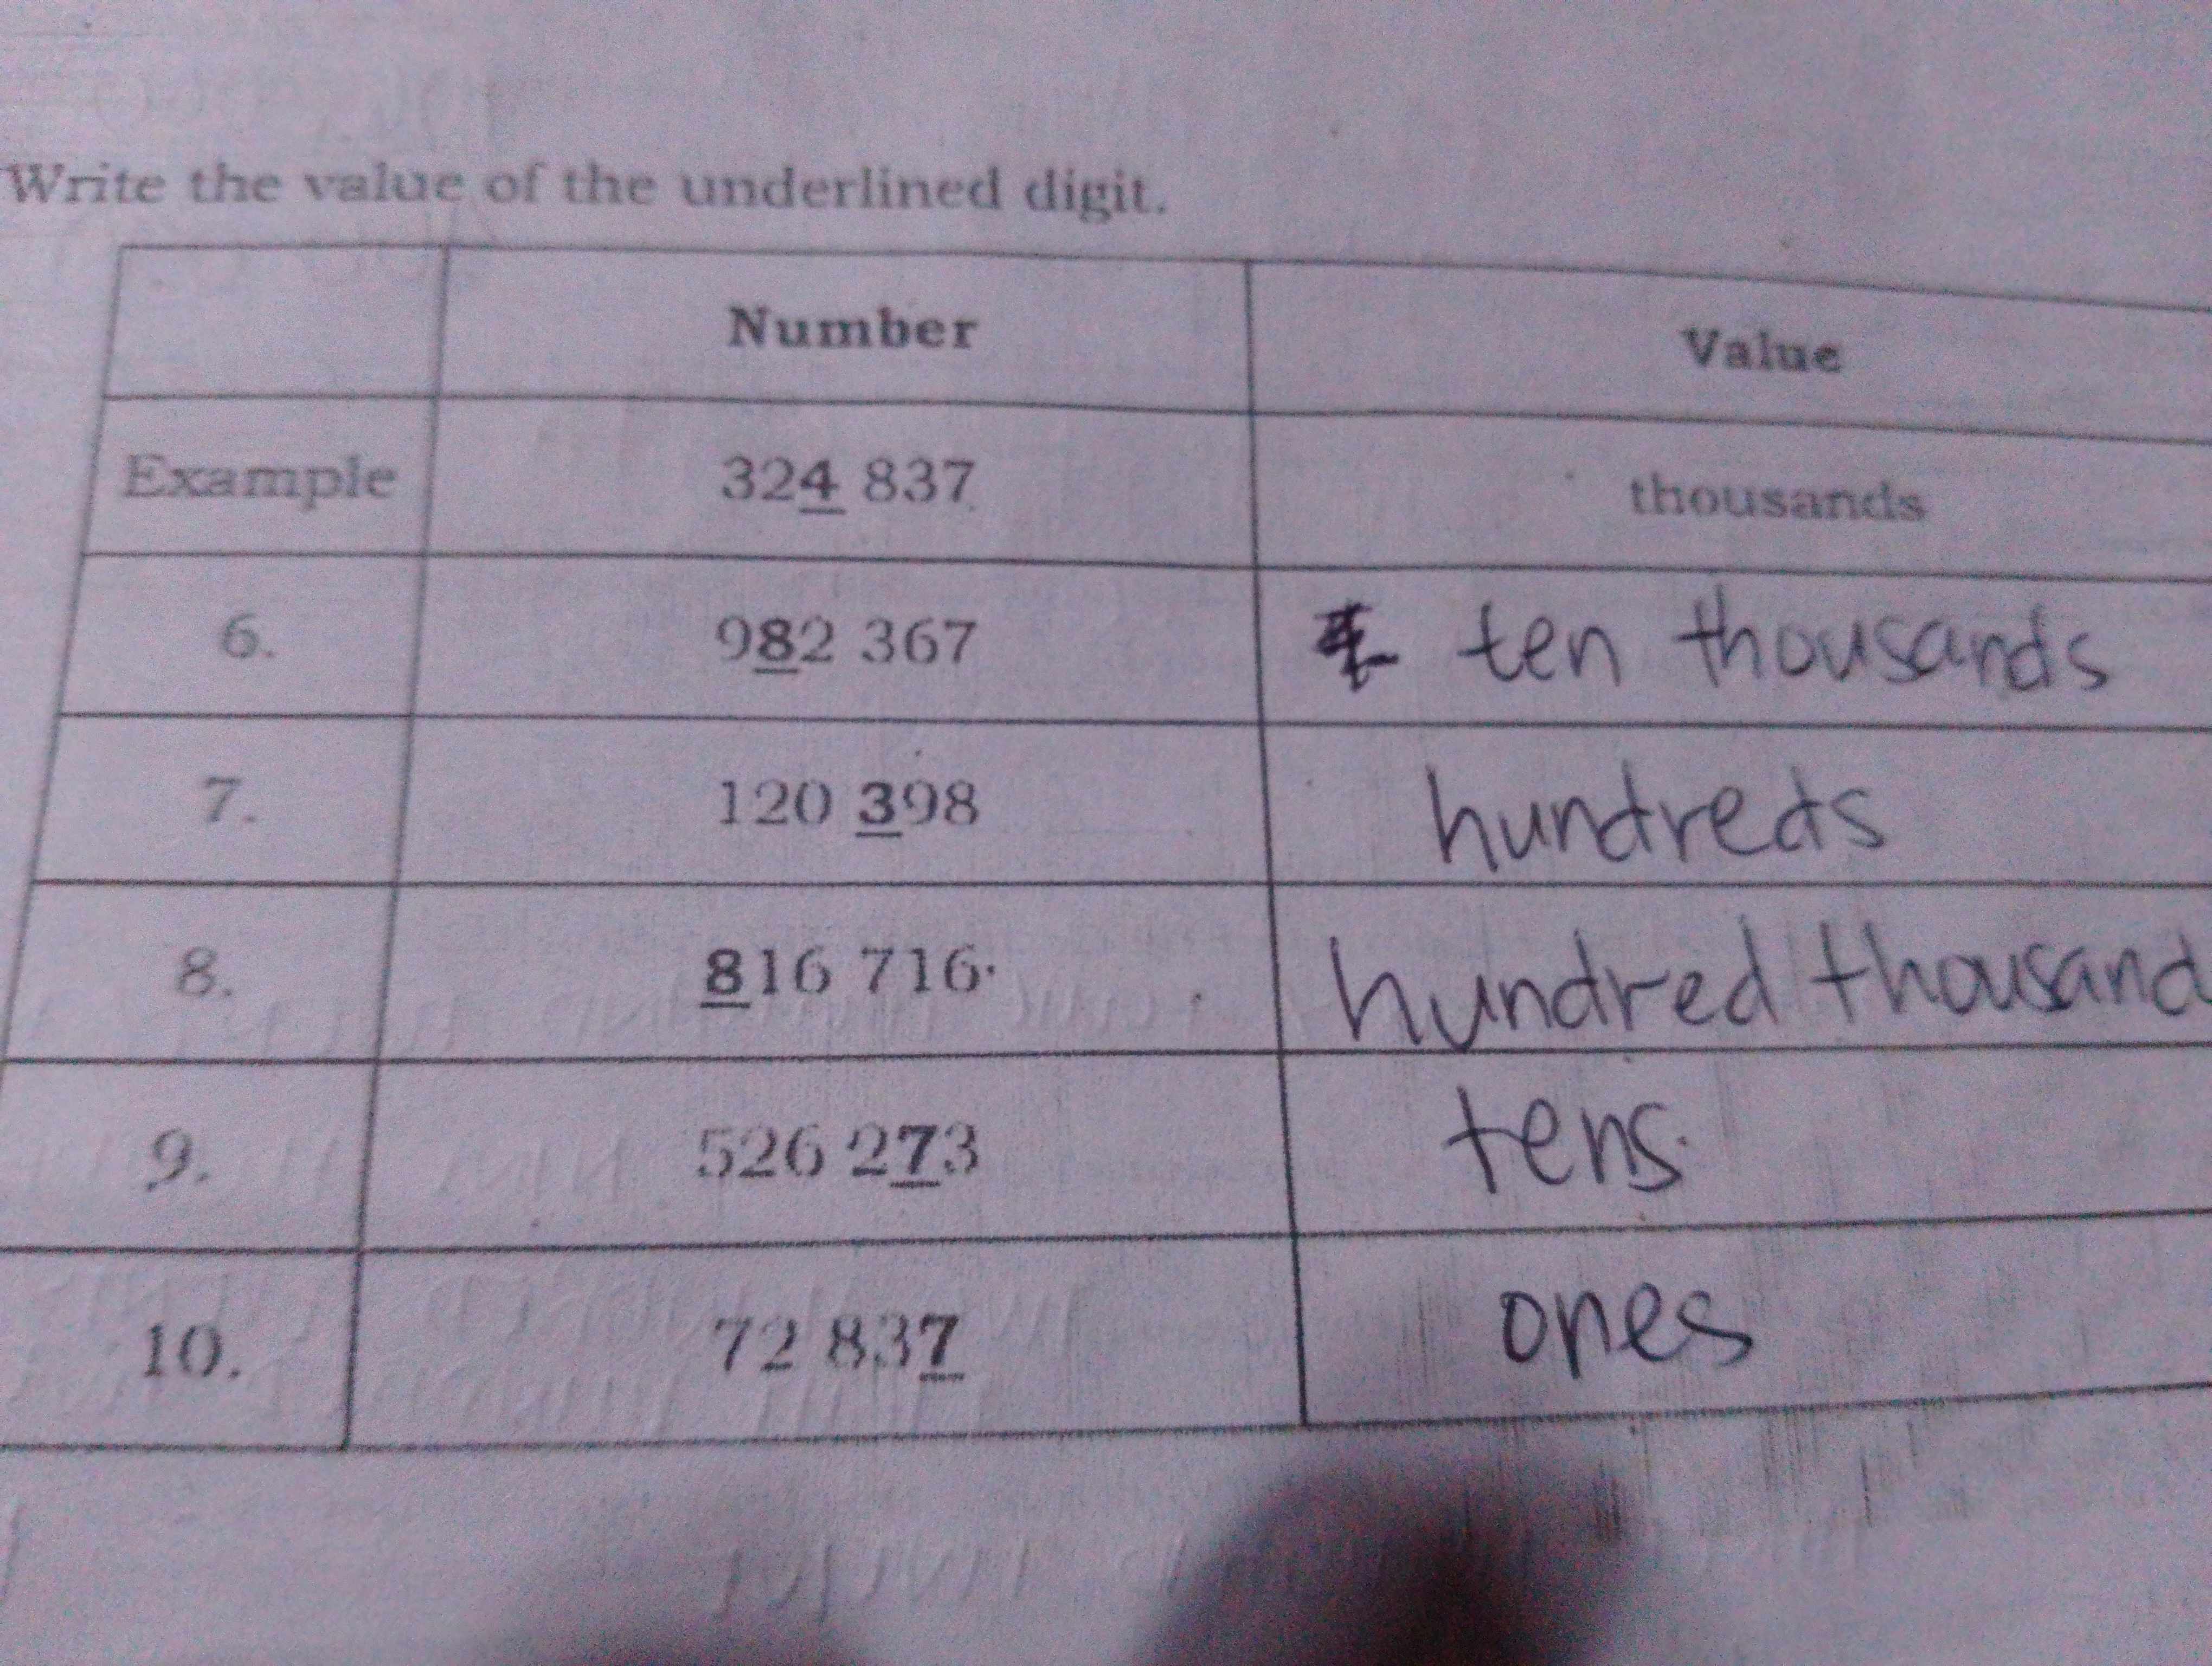 Write the value of the underlined digit.
Number Value
Example 324 837 thousands
6. 982 367 ten thousands
7. 120 398 hundreds
8. 816 716 hundred thousand
9. 526 273 tens
10. 72 837 ones